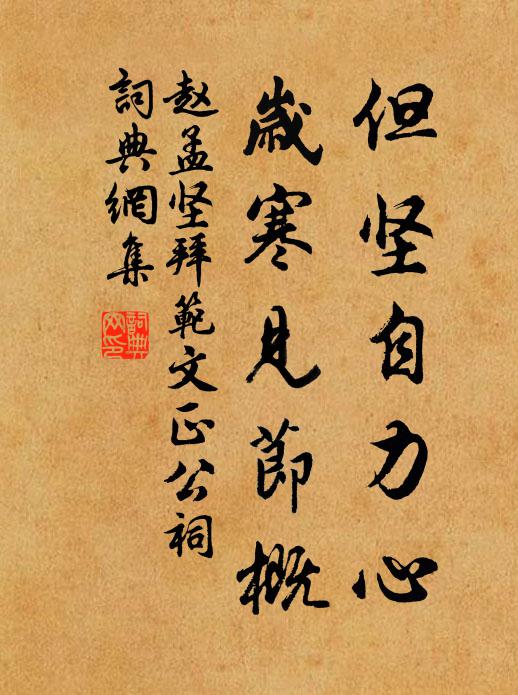 但坚自力心
歲寒見節概
赵孟坚拜範文正公祠
詞典網集
詞典網印